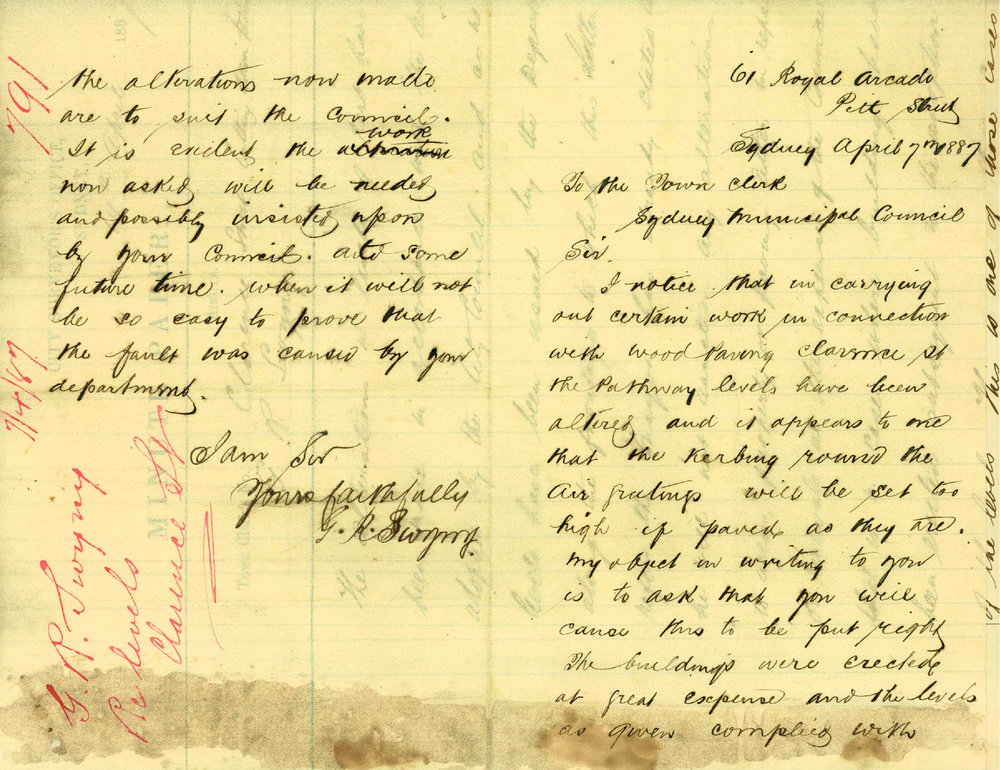 61 Royal Arcade
Pitt Street
Sydney April 7th 1887
To the Town Clerk
Sydney Municipal Council
Sir.
I notice that in carrying
out certain work in connection
with wood Paving Clarence St
the Pathway levels have been
altered and it appears to me
that the Kerbing round the
Air gratings will be set too
high if paved as they are.
My object in writing to you
is to ask that you will
cause this to be put right
The buildings were erected
at great expense and the levels
as given complied with
the alterations now made
are to suit the Council.
It is evident the work
now asked will be needed
and possibly insisted upon
by your Council. at some
future time. when it will not
be so easy to prove that
the fault was caused by your
department.
I am Sir
Yours faithfully
G. R. Twyny.
791
7/4/87
G. R. Twyny
Re levels
Clarence St
of the levels This is one of those cases